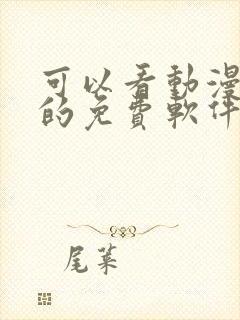 可以看動漫
的免費軟件
尾葉